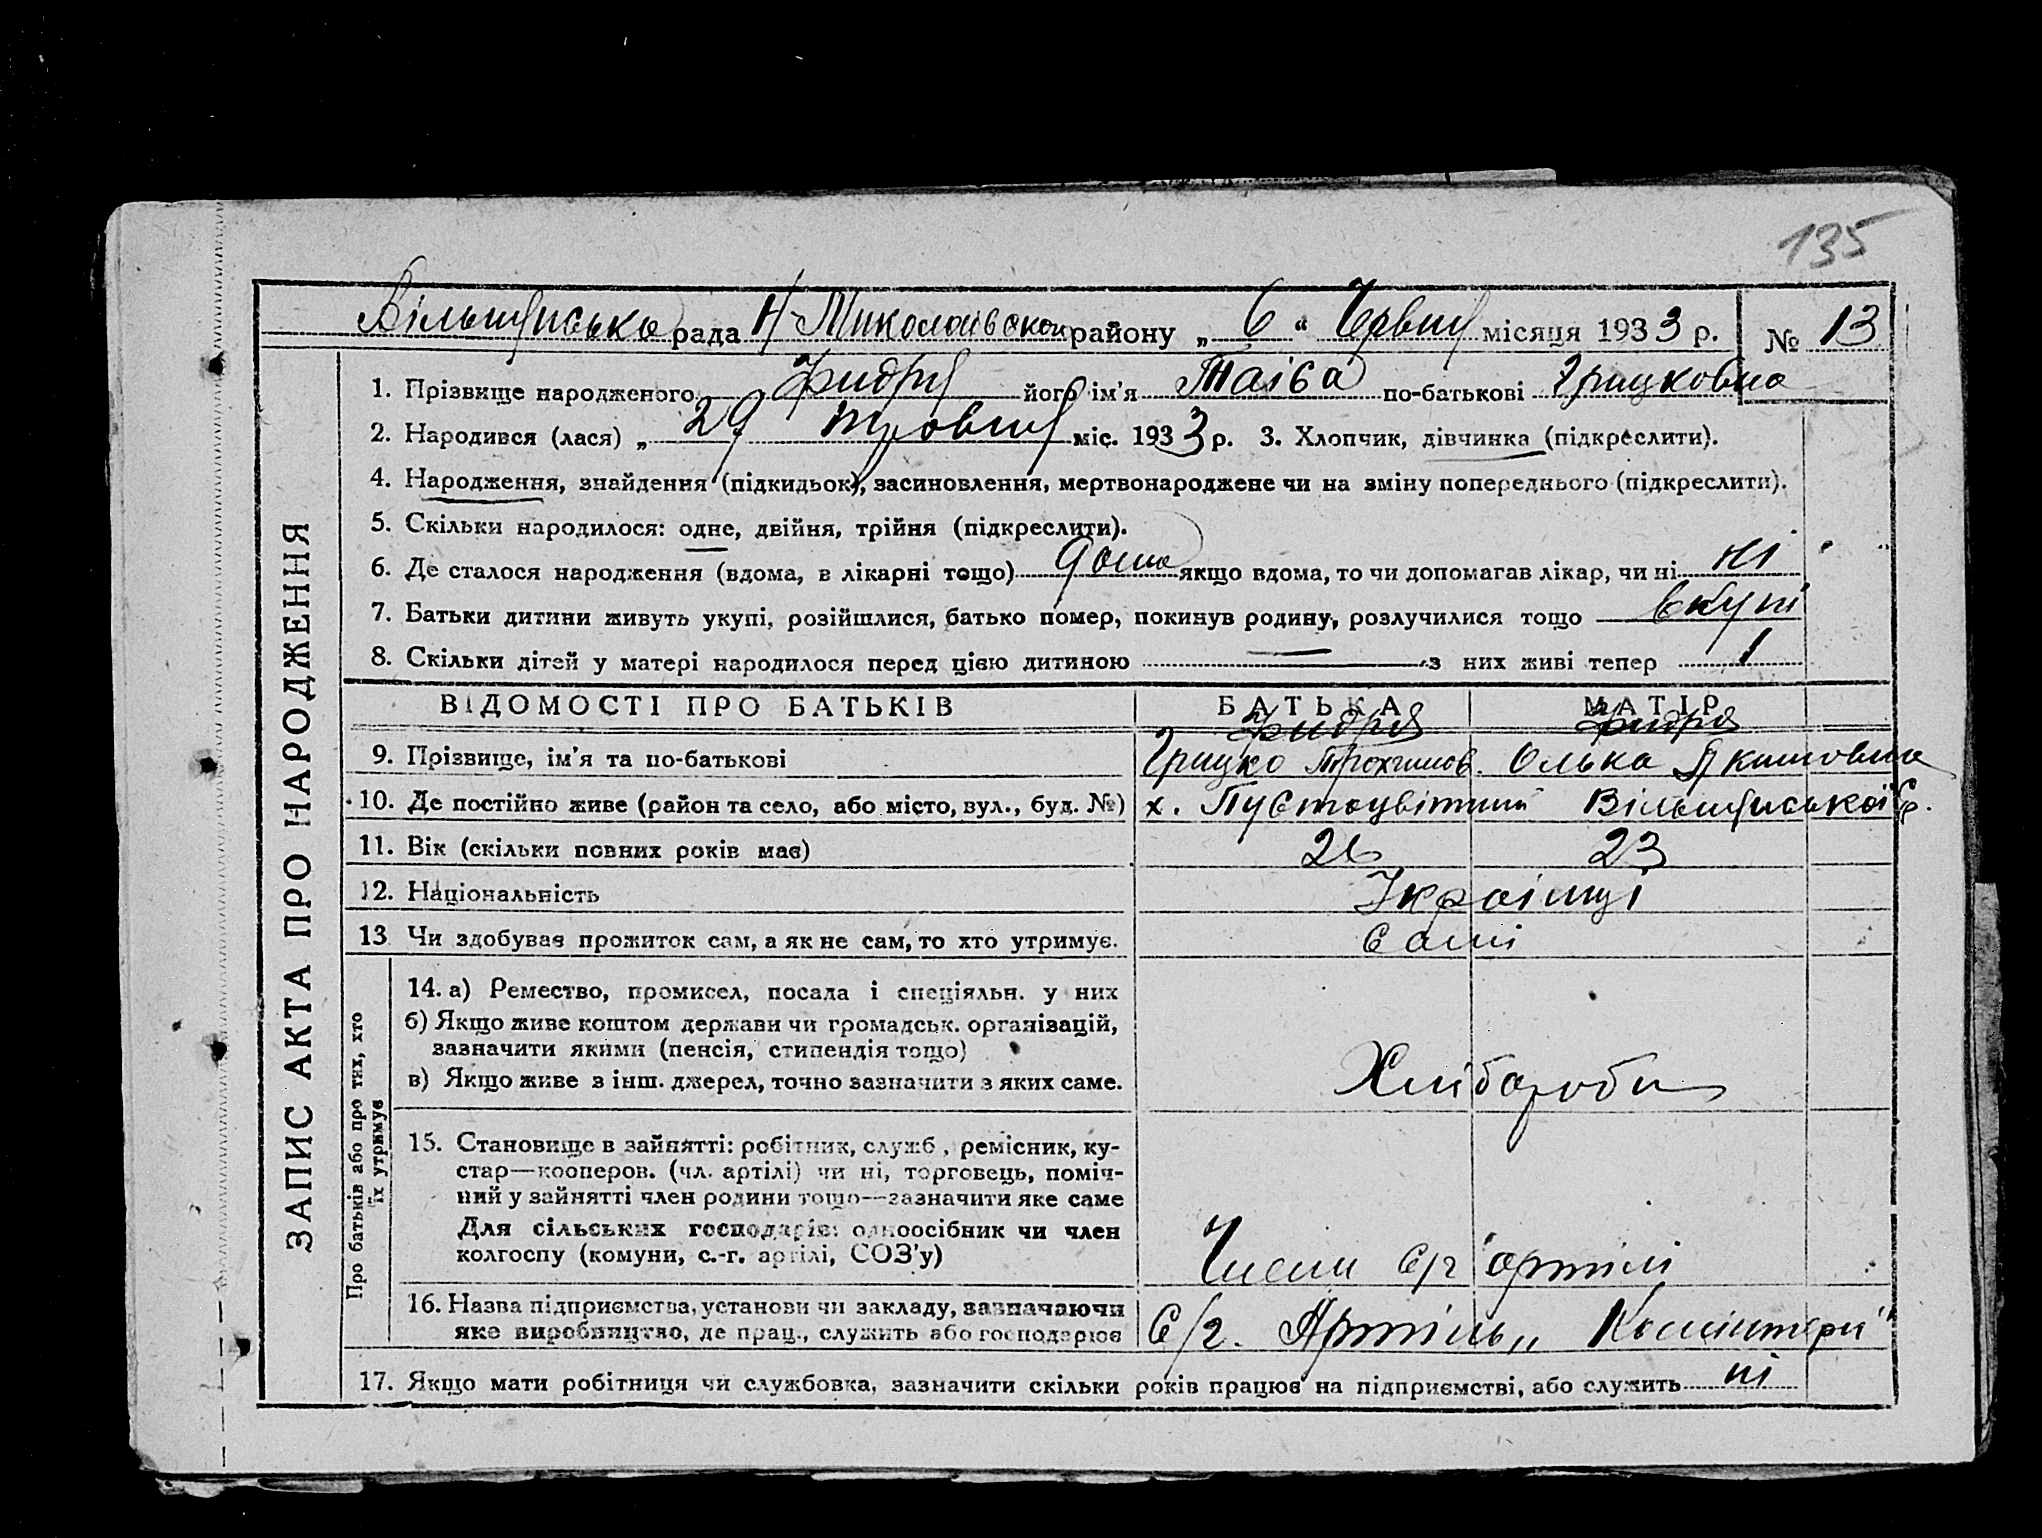 135
Вільшанська рада Н-Миколаївского району „ 6 “ Червня місяця 1933 р. № 13
ЗАПИС АКТА ПРО НАРОДЖЕННЯ
1. Прізвище народженого його ім'я Таіса по-батькові Грицковна
2. Народився (лася) „ 29 травня міс. 1933 р. 3. Хлопчик, дівчинка (підкреслити).
4. Народження, знайдення (підкидьок), засиновлення, мертвонароджене чи на зміну попереднього (підкреслити).
5. Скільки народилося: одне, двійня, трійня (підкреслити).
6. Де сталося народження (вдома, в лікарні тощо) дома якщо вдома, то чи допомагав лікар, чи ні ні
7. Батьки дитини живуть укупі, розійшлися, батько помер, покинув родину, розлучилися тощо вкупі
8. Скільки дітей у матері народилося перед цією дитиною — з них живі тепер 1
ВІДОМОСТІ ПРО БАТЬКІВ БАТЬКА МАТІР
9. Прізвище, ім'я та по-батькові Грицко Трохимов. Олька Якимовна
10. Де постійно живе (район та село, або місто, вул., буд. №) х. Пустоцвітний
11. Вік (скільки повних років має) 26 23
12. Національність Українці
13 Чи здобуває прожиток сам, а як не сам, то хто утримує. Самі
Про батьків або про тих, хто їх утримує
14. а) Ремество, промисел, посада і спеціяльн. у них
б) Якщо живе коштом держави чи громадськ. організацій,
зазначити якими (пенсія, стипендія тощо)
в) Якщо живе з інш. джерел, точно зазначити з яких саме. Хлібороби
15. Становище в зайнятті: робітник, служб., ремісник, ку-
стар—кооперов. (чл. артілі) чи ні, торговець, поміч-
ний у зайнятті член родини тощо—зазначити яке саме
Для сільських господарів: одноосібник чи член
колгоспу (комуни, с.-г. артілі, СОЗ'у) Члени с/г артілі
16. Назва підприємства, установи чи закладу, зазначаючи
яке виробництво, де прац., служить або господарює С/г. Артіль „Комінтерн“
17. Якщо мати робітниця чи службовка, зазначити скільки років працює на підприємстві, або служить ні